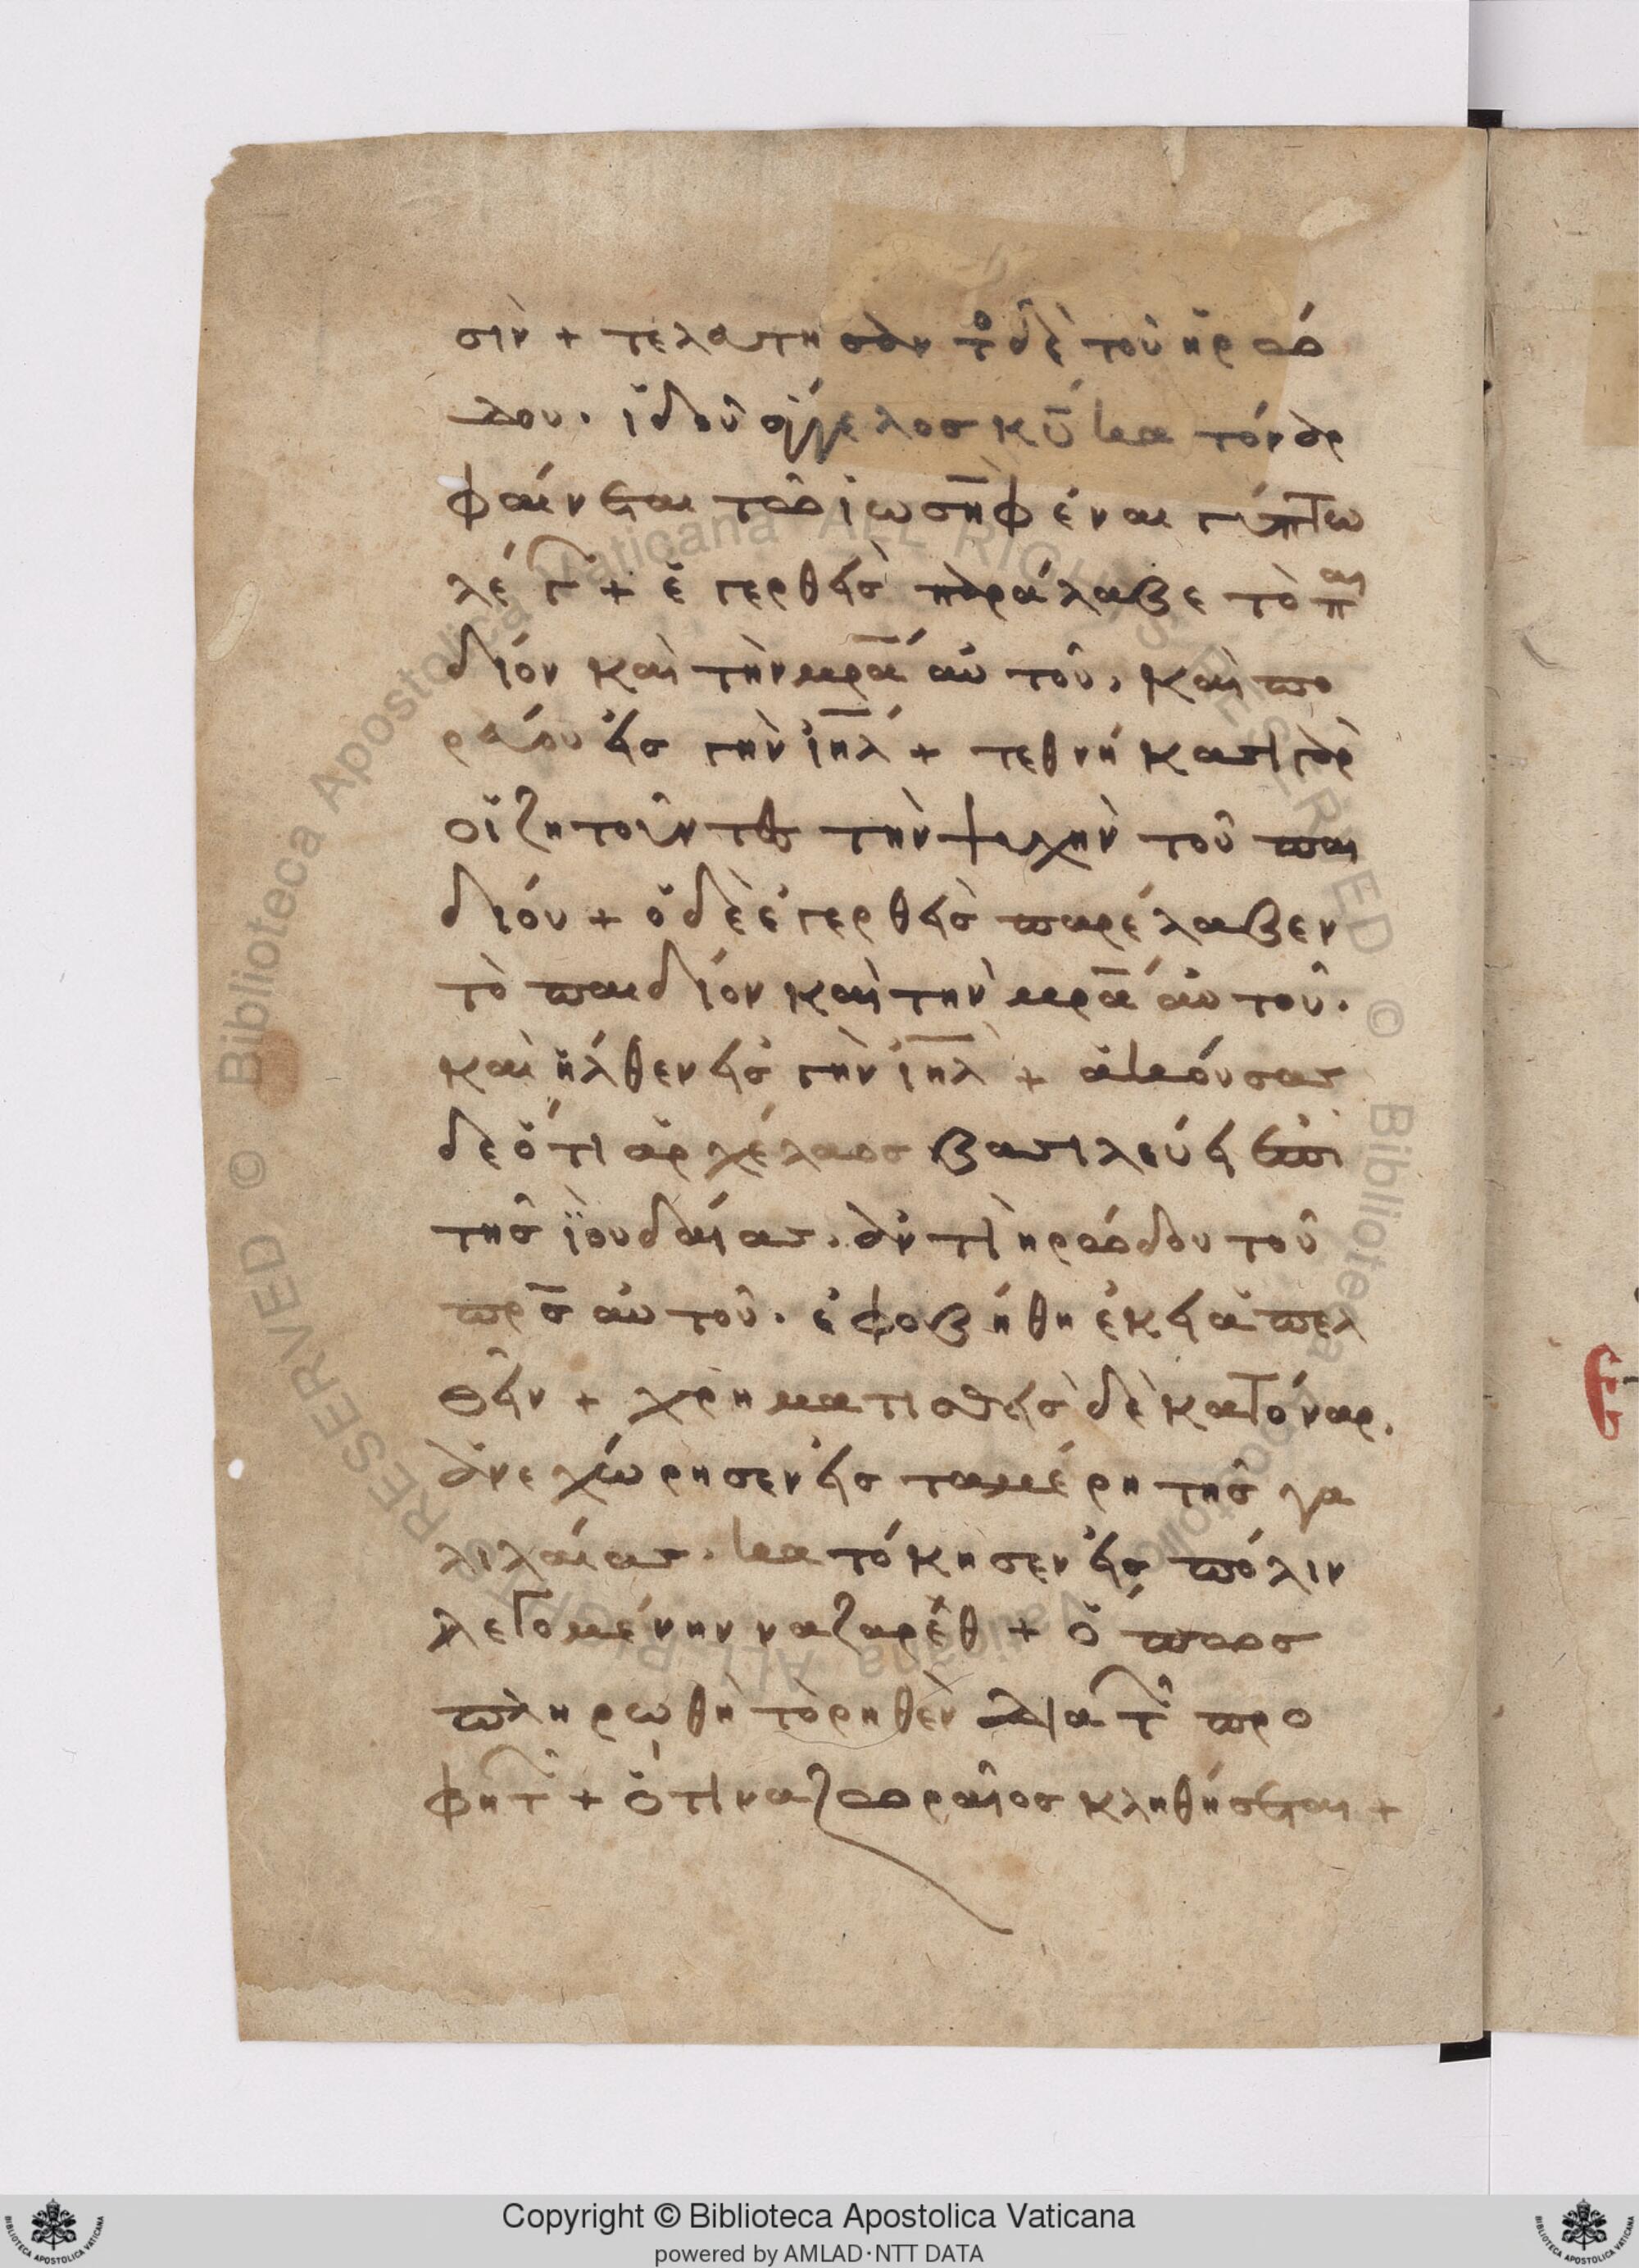 σιν + τελευτησαντο δὲ τοῦ ἡρώ
δου. ἰδοὺ ἄγγελος κυ κατόναρ
φαίνεται τῶ ἰωσὴφ ἐν αιγύπτω
λέγ + ἐγερθεὶς παράλαβε τὸ παι
δίον καὶ τὴν μρα αὐτοῦ, καὶ πο
ρεύου εἰς γὴν ιηλ + τεθνήκασι γὰρ
οἱ ζητοῦντες τὴν ψυχὴν τοῦ παι
δίου + ὁ δὲ ἐγερθεὶς παρέλαβεν
τὸ παιδίον καὶ τὴν μρα αὐτοῦ.
καὶ ἦλθεν εἰς γὴν ιηλ + ἀκούσας
δε ὅτι ἀρχέλαος βασιλεύει ἐπὶ
τῆς ϊουδαίας. ἀντὶ ἡρώδου τοῦ
πρς αὐτοῦ. ἐφοβήθη ἐκεῖ ἀπελ
θεῖν + χρηματισθεὶς δὲ κατόναρ.
ἀνεχώρησεν εἰς τα μέρη τῆς γα
λιλαίας. κατόκησεν εἰς πόλιν
λεγομένην ναζαρέθ + ὅπως
πληρωθῆ τὸ ρηθὲν δια τ προ
φητ + ὅτι ναζωραῖος κληθήσεται +
Copyright © Biblioteca Apostolica Vaticana
powered by AMLAD·NTT DATA